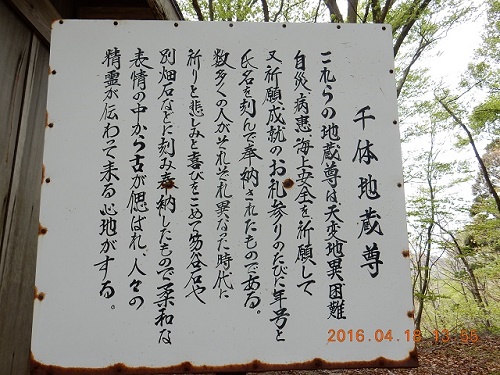 千体地蔵尊
これらの地蔵尊は、天変地異困難
自災、病患、海上安全を祈願して
又祈願成就のお礼参りのたびに年号と
氏名を刻んで奉納されたものである。
数多くの人がそれぞれ異なった時代に
祈りと悲しみと喜びをこめて笏谷石や
別畑石などに刻み奉納したもので柔和な
表情の中から古が偲ばれ、人々の
精霊が伝わって来る心地がする。
2016.04.18